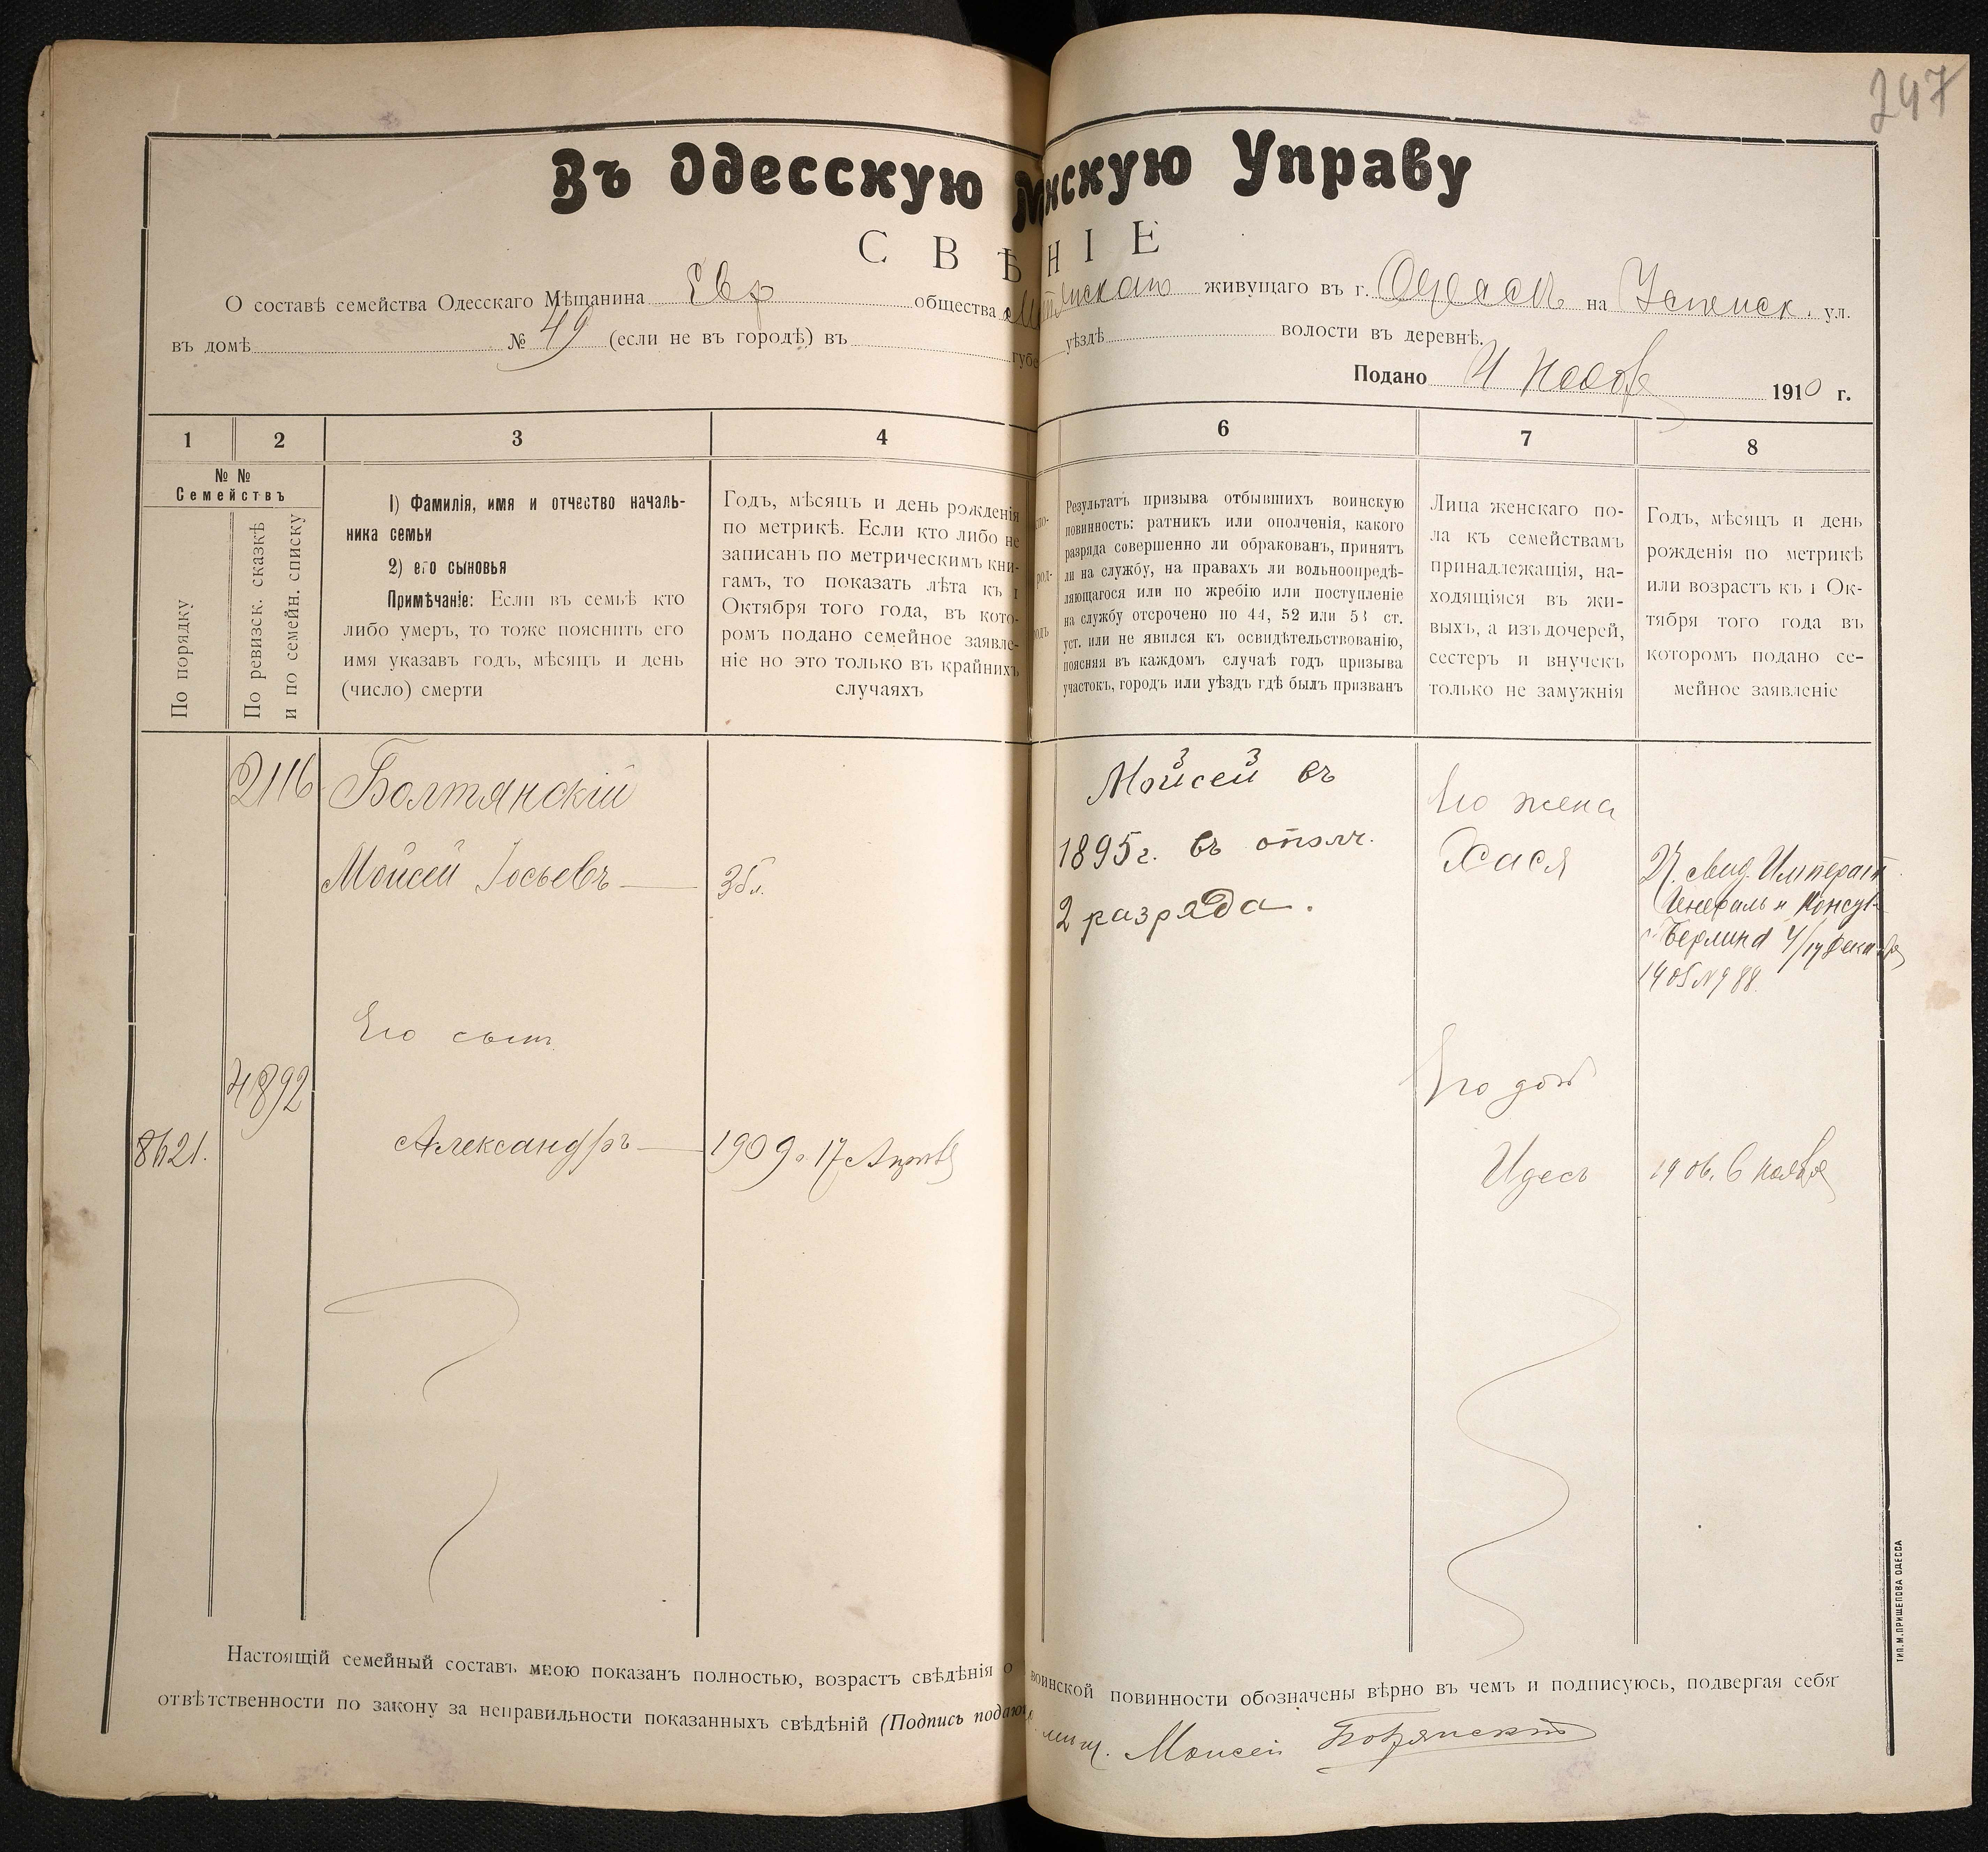 247
Въ Одесскую М нскую Управу
С В Ѣ Н І Е
О составѣ семейства Одесскаго Мѣщанина Евр общества живущаго въ г. Одессѣ на Успенск. ул.
въ домѣ № 49 (если не въ городѣ) въ губе уѣздѣ волости въ деревнѣ.
Подано 4 Нояб 1910 г.
1 2 3 4 6 7 8
№ №
Семействъ
По порядку
По ревизск. сказкѣ
и по семейн. списку
1) Фамилія, имя и отчество началь-
ника семьи
2) его сыновья
Примѣчаніе: Если въ семьѣ кто
либо умеръ, то тоже пояснить его
имя указавъ годъ, мѣсяцъ и день
(число) смерти
Годъ, мѣсяцъ и день рожденія
по метрикѣ. Если кто либо не
записанъ по метрическимъ кни-
гамъ, то показать лѣта къ 1
Октября того года, въ кото-
ромъ подано семейное заявле-
ніе но это только въ крайнихъ
случаяхъ
Результатъ призыва отбывшихъ воинскую
повинность: ратникъ или ополченія, какого
разряда совершенно ли обракованъ, принятъ
ли на службу, на правахъ ли вольноопредѣ-
ляющагося или по жребію или поступленіе
на службу отсрочено по 44, 52 или 53 ст.
уст. или не явился къ освидѣтельствованію,
поясняя въ каждомъ случаѣ годъ призыва
участокъ, городъ или уѣздъ гдѣ былъ призванъ
Лица женскаго по-
ла къ семействамъ
принадлежащія, на-
ходящіяся въ жи-
выхъ, а изъ дочерей,
сестеръ и внучекъ
только не замужнія
Годъ, мѣсяцъ и день
рожденія по метрикѣ
или возрастъ къ 1 Ок-
тября того года въ
которомъ подано се-
мейное заявленіе
2116
Болтянскій
Мойсей Іосьевъ
36 л.
Мойсей въ
1895 г. въ ополч.
2 разряда.
Его жена
Хася
свид. Императ
Генеральн Консул
Берлина 4/17 Дека
1905 № 988
Его сынъ
4892
8621.
Александръ
1909 г. 17 Апрѣля
Его доч
Идесъ
1906. 6 ноября
Настоящій семейный составъ мною показанъ полностью, возрастъ свѣдѣнія о воинской повинности обозначены вѣрно въ чемъ и подписуюсь, подвергая себя
отвѣтственности по закону за неправильности показанныхъ свѣдѣній (Подпись подаю мѣщ. Моисей Болтянский
ТИП. М. ПРИЩЕПОВА ОДЕССА